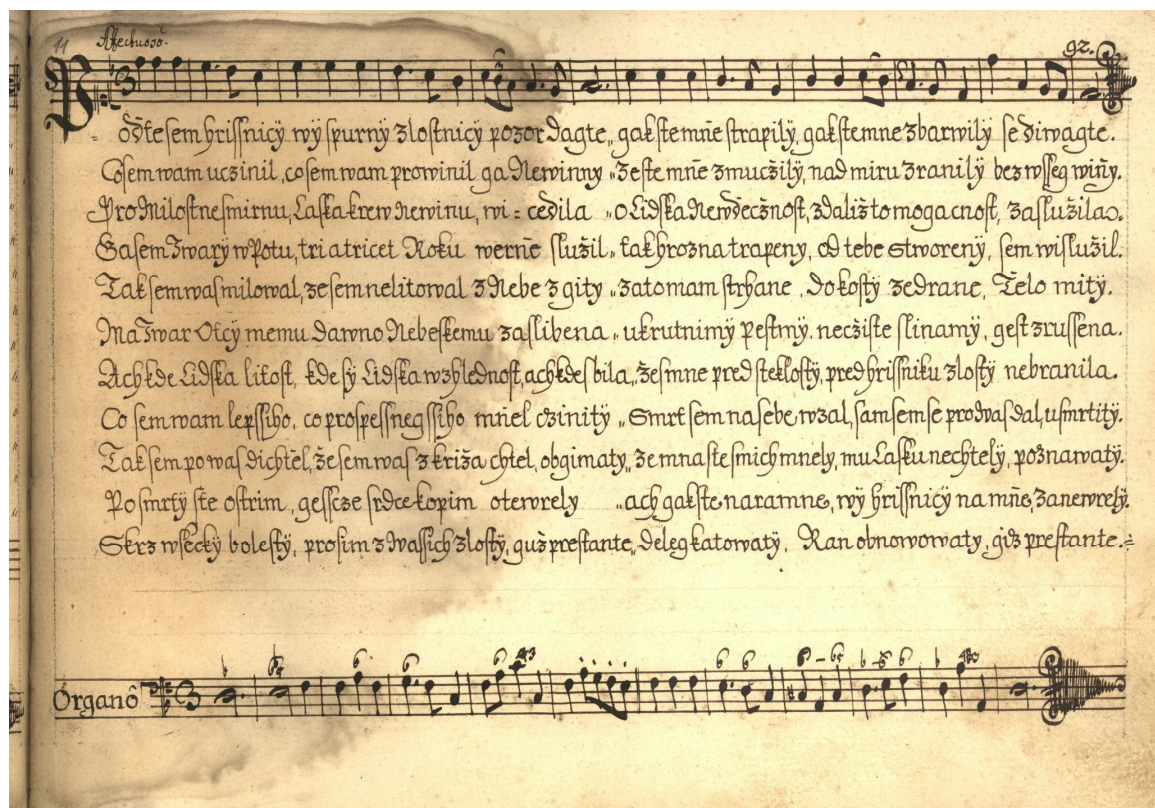 11 Affectuosò. 92.
Podte sem hrissnicÿ wÿ spurnÿ zlostnicÿ pozor dagte„ gak ste mñe strapilÿ, gak ste mne zbarwilÿ se diwagte.
Co sem wam uczinil, co sem wam prowinil ga Newinny „ že ste mñe zmučžilÿ, nad miru zranilÿ bez wsseg wiñy.
Pro Milost nesmirnu, Laska krew Newinu, wi = cedila „ o Lidska Newdečžnost, zdaliž to moga cnost, zaslužila.
Ga sem Twarÿ w Potu, tri a tricet Roku werñe služil „ tak hrozna trapenÿ, od tebe stworenÿ, sem wislužil.
Tak sem was milowal, ze sem nelitowal z Nebe z gitÿ „ za to mam strhane, do kostÿ zedrane, Telo mitÿ.
Ma Twar Otcÿ memu dawno Nebeskemu zaslibena „ ukrutnimÿ Pestmÿ, necžiste slinamÿ, gest zrussena.
Ach kde Lidska litost, kde sÿ Lidska wzhlednost, ach kdes bila„ že s mne pred steklostÿ, pred hrissniku zlostÿ nebranila.
Co sem wam lepssiho, co prospessnegssiho mñel czinitÿ „ Smrt sem na sebe wzal, sam sem se pro was dal, usmrtitÿ.
Tak sem po was dichtel, že sem was z križa chtel, obgimaty„ ze mna ste smich mnely, mu Lasku nechtelÿ, poznawatÿ.
Po smrtÿ ste ostrim, gesscze srdce kopim otewrely „ ach gak ste naramne, wÿ hrissnicÿ na mñe, zanewrelÿ.
Skrz wseckÿ bolestÿ, prosim z Wassich zlostÿ, guž prestante„ deleg katowatÿ, Ran obnowowaty, giz prestante.
Organô